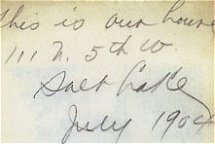 This is our house
111 N. 5th W.
Salt Lake
July 190